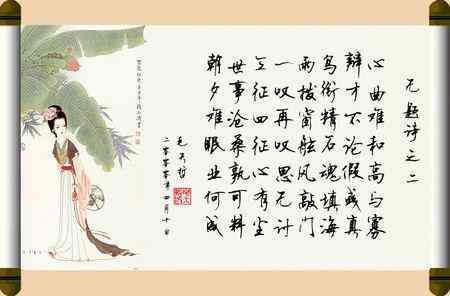 无题诗之二
心曲难和高与寡
辩才不论假或真
鸟衔精石魂填海
雨拨窗舷风敲门
一叹再叹思无计
征四征心有尘
世事沧桑孰可料
朝夕难眠业何成
年四月十日